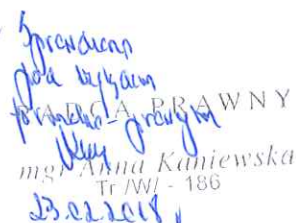 Sprawdzono
pod względem
formalno-prawnym
RADCA PRAWNY
mgr Anna Kaniewska
Tr /W/ - 186
23.02.2018